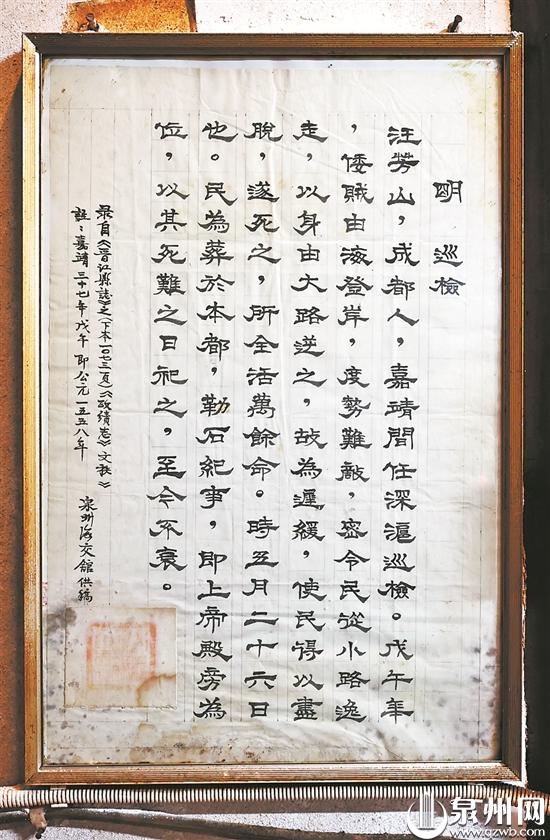 明 巡檢
汪芳山，成都人，嘉靖間任深滬巡檢。戊午年
，倭賊由海登岸，度勢難敵，密令民從小路逸
走，以身由大路逆之，故為遲緩，使民得以盡
脫，遂死之，所全活萬餘命。時五月二十六日
也。民為葬於本都，勒石紀事，即上帝殿旁為
位，以其死難之日祀之，至今不衰。
录自《晋江縣誌》之（下本一〇七三頁）《政績志》文秩》
註：嘉靖三十七年戊午即公元一五五八年
泉州海交館供稿
泉州网
www.qzwb.com